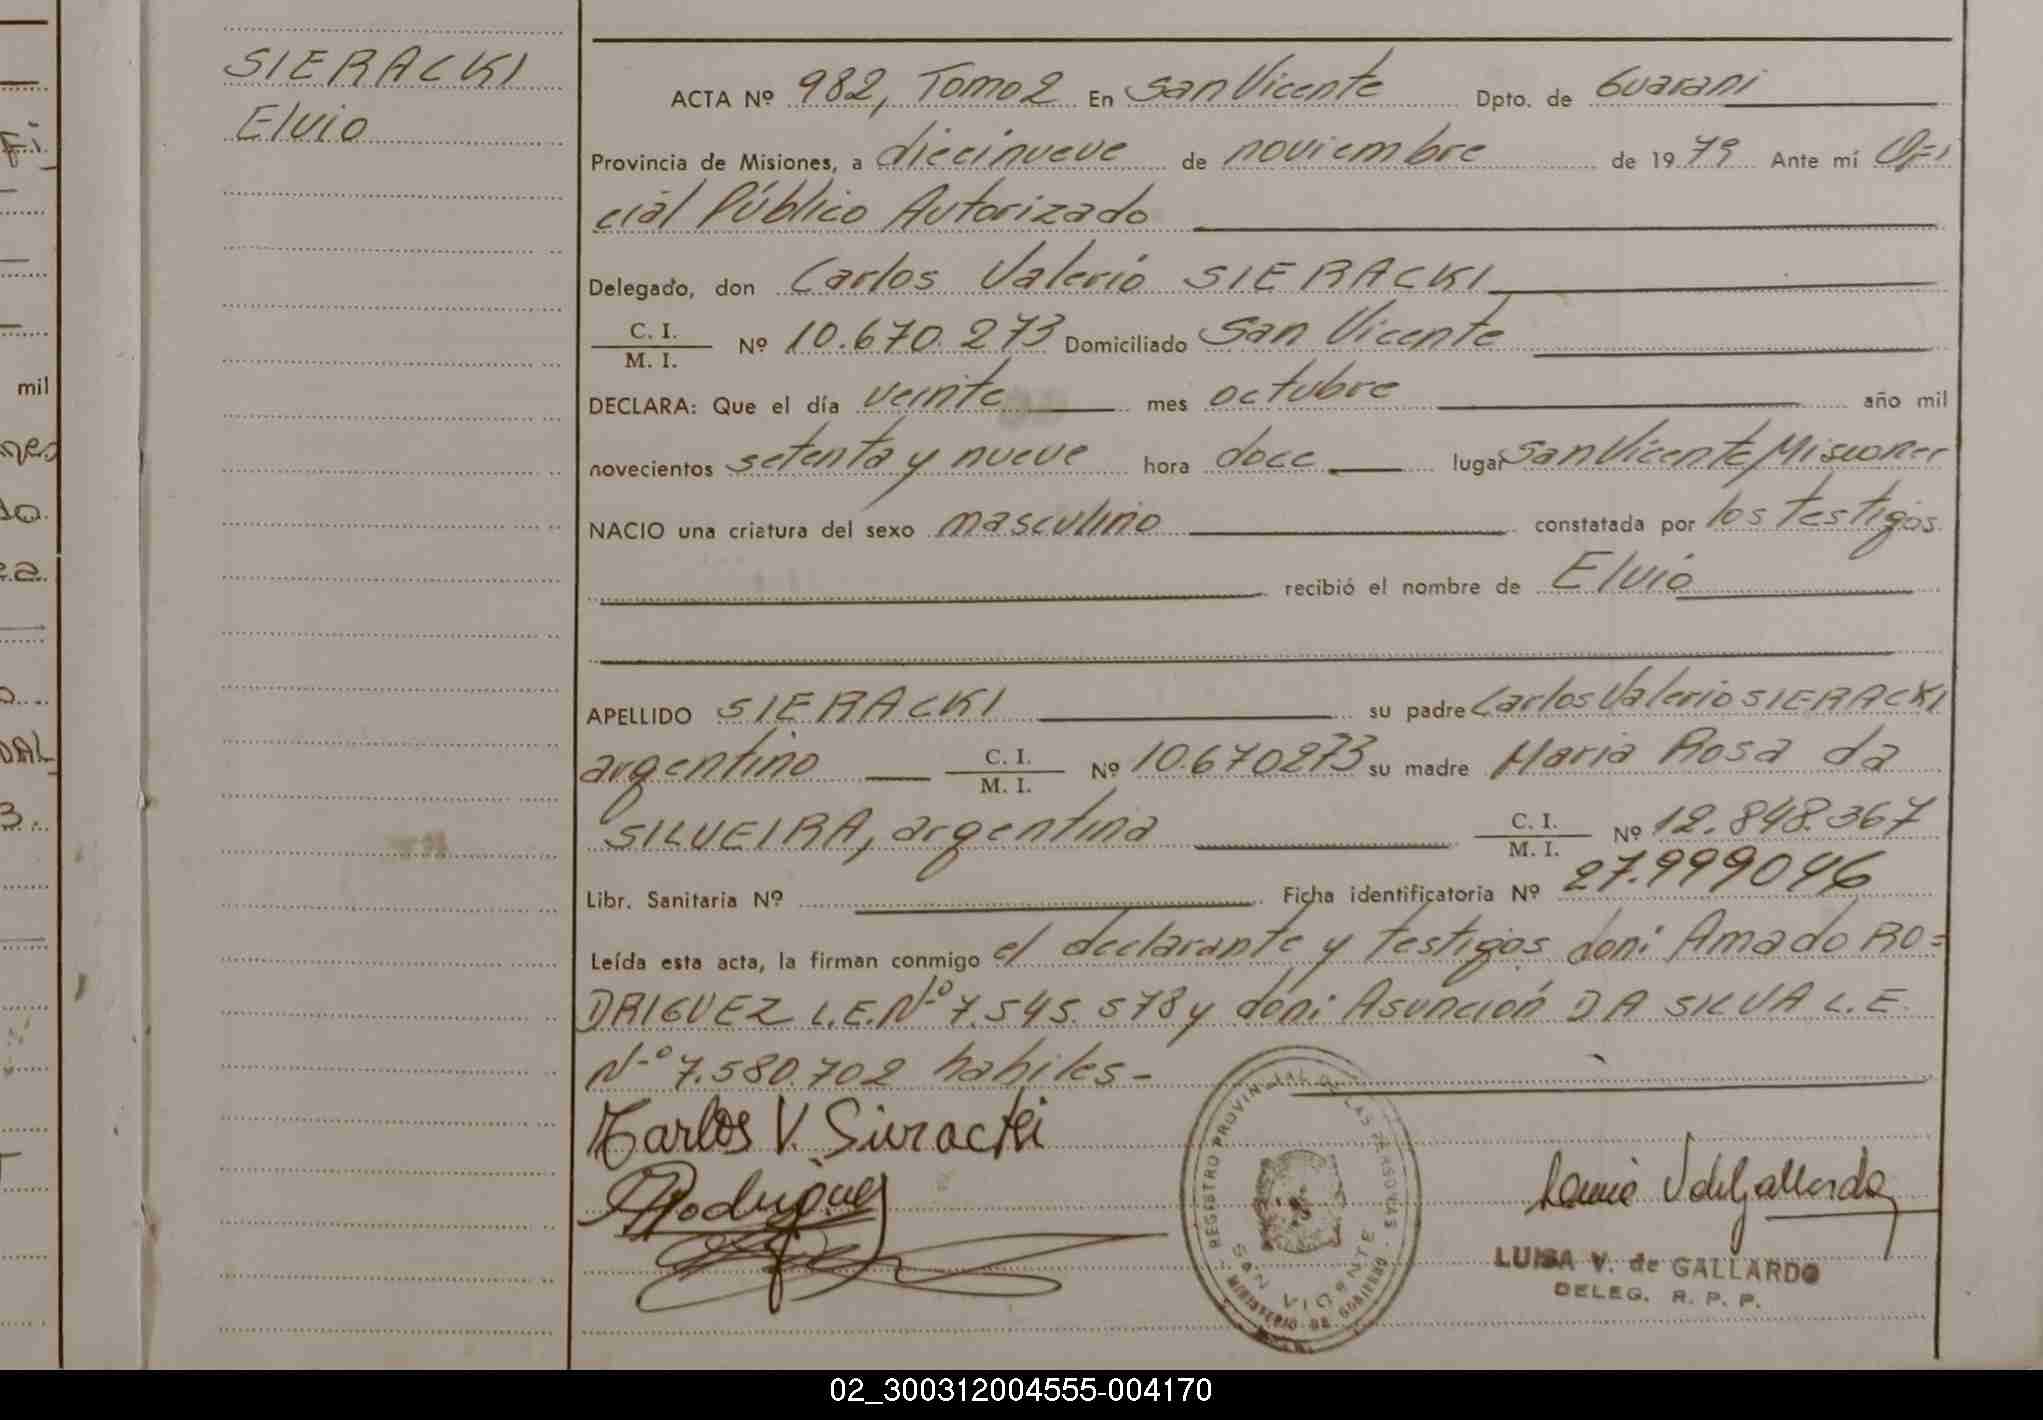 SIERACKI
Elvio
ACTA Nº 982, Tomo 2 En San Vicente Dpto. de Guarani
Provincia de Misiones, a diecinueve de noviembre de 1979 Ante mí Ofi
cial Público Autorizado
Delegado, don Carlos Valerio SIERACKI
C. I.
M. I. Nº 10.670.273 Domiciliado San Vicente
DECLARA: Que el día veinte mes octubre año mil
novecientos setenta y nueve hora doce lugar San Vicente Misiones
NACIO una criatura del sexo masculino constatada por los testigos
recibió el nombre de Elvio
APELLIDO SIERACKI su padre Carlos Valerio SIERACKI
argentino C. I. M. I. Nº 10.670273 su madre Maria Rosa da
SILVEIRA, argentina C. I. M. I. Nº 12.848.367
Libr. Sanitaria Nº Ficha identificatoria Nº 27.999046
Leída esta acta, la firman conmigo el declarante y testigos don: Amado RO=
DRIGUEZ L.E.Nº 7.545.578 y don: Asunción DA SILVA L.E.
Nº 7.580.702 habiles-
Carlos V. Sieracki
Rodriguez
REGISTRO PROVINCIAL DE LAS PERSONAS
SAN VICENTE
MINISTERIO DE GOBIERNO
LUISA V. de GALLARDO
DELEG. R. P. P.
mil
02_300312004555-004170